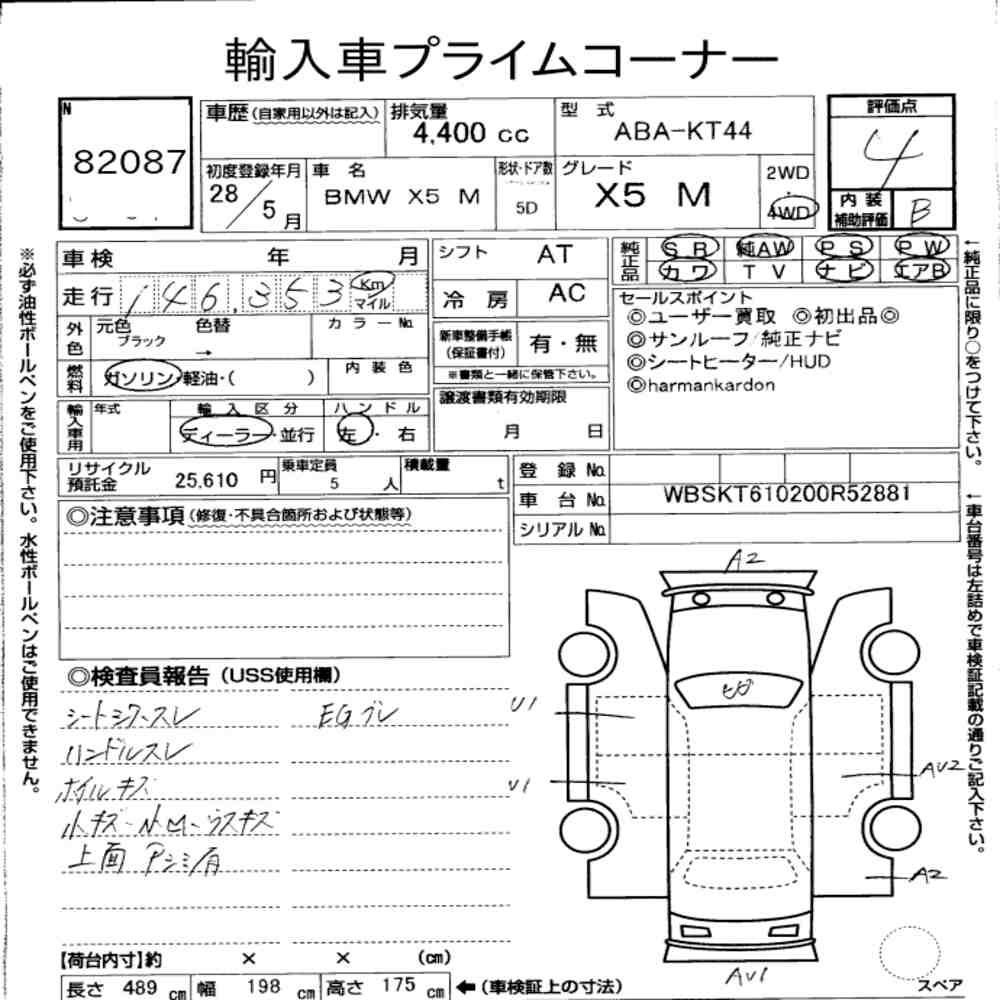 輸入車プライムコーナー
N
82087
車歴(自家用以外は記入)
排気量
4,400 cc
型 式
ABA-KT44
評価点
4
初度登録年月
28/5月
車 名
BMW X5 M
形状・ドア数
5D
グレード
X5 M
2WD
・
4WD
内装
補助評価
B
車検 年 月
走行 146,353 Km
マイル
シフト AT
冷 房 AC
純正品
SR 純AW PS PW
カワ TV ナビ エアB
外色
元色
ブラック
色替
→
カラーNo.
燃料
ガソリン・軽油・( )
内 装 色
新車整備手帳
(保証書付)
有・無
※書類と一緒に保管下さい。
セールスポイント
◎ユーザー買取 ◎初出品◎
◎サンルーフ/純正ナビ
◎シートヒーター/HUD
◎harmankardon
輸入車用
年式
輸 入 区 分
ディーラー・並行
ハ ン ド ル
左・右
譲渡書類有効期限
月 日
リサイクル
預託金
25,610 円
乗車定員
5 人
積載量
t
登 録 No.
車 台 No. WBSKT610200R52881
シリアル No.
◎注意事項(修復・不具合箇所および状態等)
◎検査員報告(USS使用欄)
シートシワ・スレ
EGブレ
ハンドルスレ
ホイルキズ
小キズ・小M・ウスキズ
上面Pシミ有
A2
U1
U1
AU2
A2
AU1
スペア
【荷台内寸】約 × × (cm)
長さ 489 cm 幅 198 cm 高さ 175 cm ←(車検証上の寸法)
※必ず油性ボールペンをご使用下さい。水性ボールペンはご使用できません。
←純正品に限り○をつけて下さい。
←車台番号は左詰めで車検証記載の通りご記入下さい。